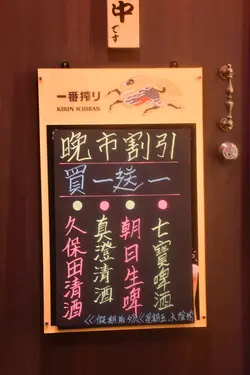 中
です
一番搾り
KIRIN ICHIBAN
晩市割引
買一送一
七寶啤酒
朝日生啤
真澄清酒
久保田清酒